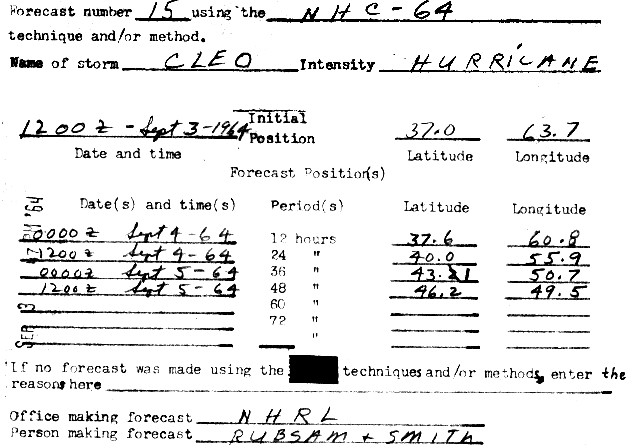 Forecast number 15 using the NHC-64
technique and/or method.
Name of storm CLEO Intensity HURRICANE
Initial
1200 Z - Sept 3-1964 Position 37.0 63.7
Date and time Latitude Longitude
Forecast Position(s)
Date(s) and time(s) Period(s) Latitude Longitude
0000 Z Sept 4-64 12 hours 37.6 60.8
1200 Z Sept 4-64 24 " 40.0 55.9
0000 Z Sept 5-64 36 " 43.1 50.7
1200 Z Sept 5-64 48 " 46.2 49.5
60 "
72 "
"
SEP 3 '64
If no forecast was made using the techniques and/or methods, enter the
reasons here
Office making forecast NHRL
Person making forecast RUBSAM + SMITH